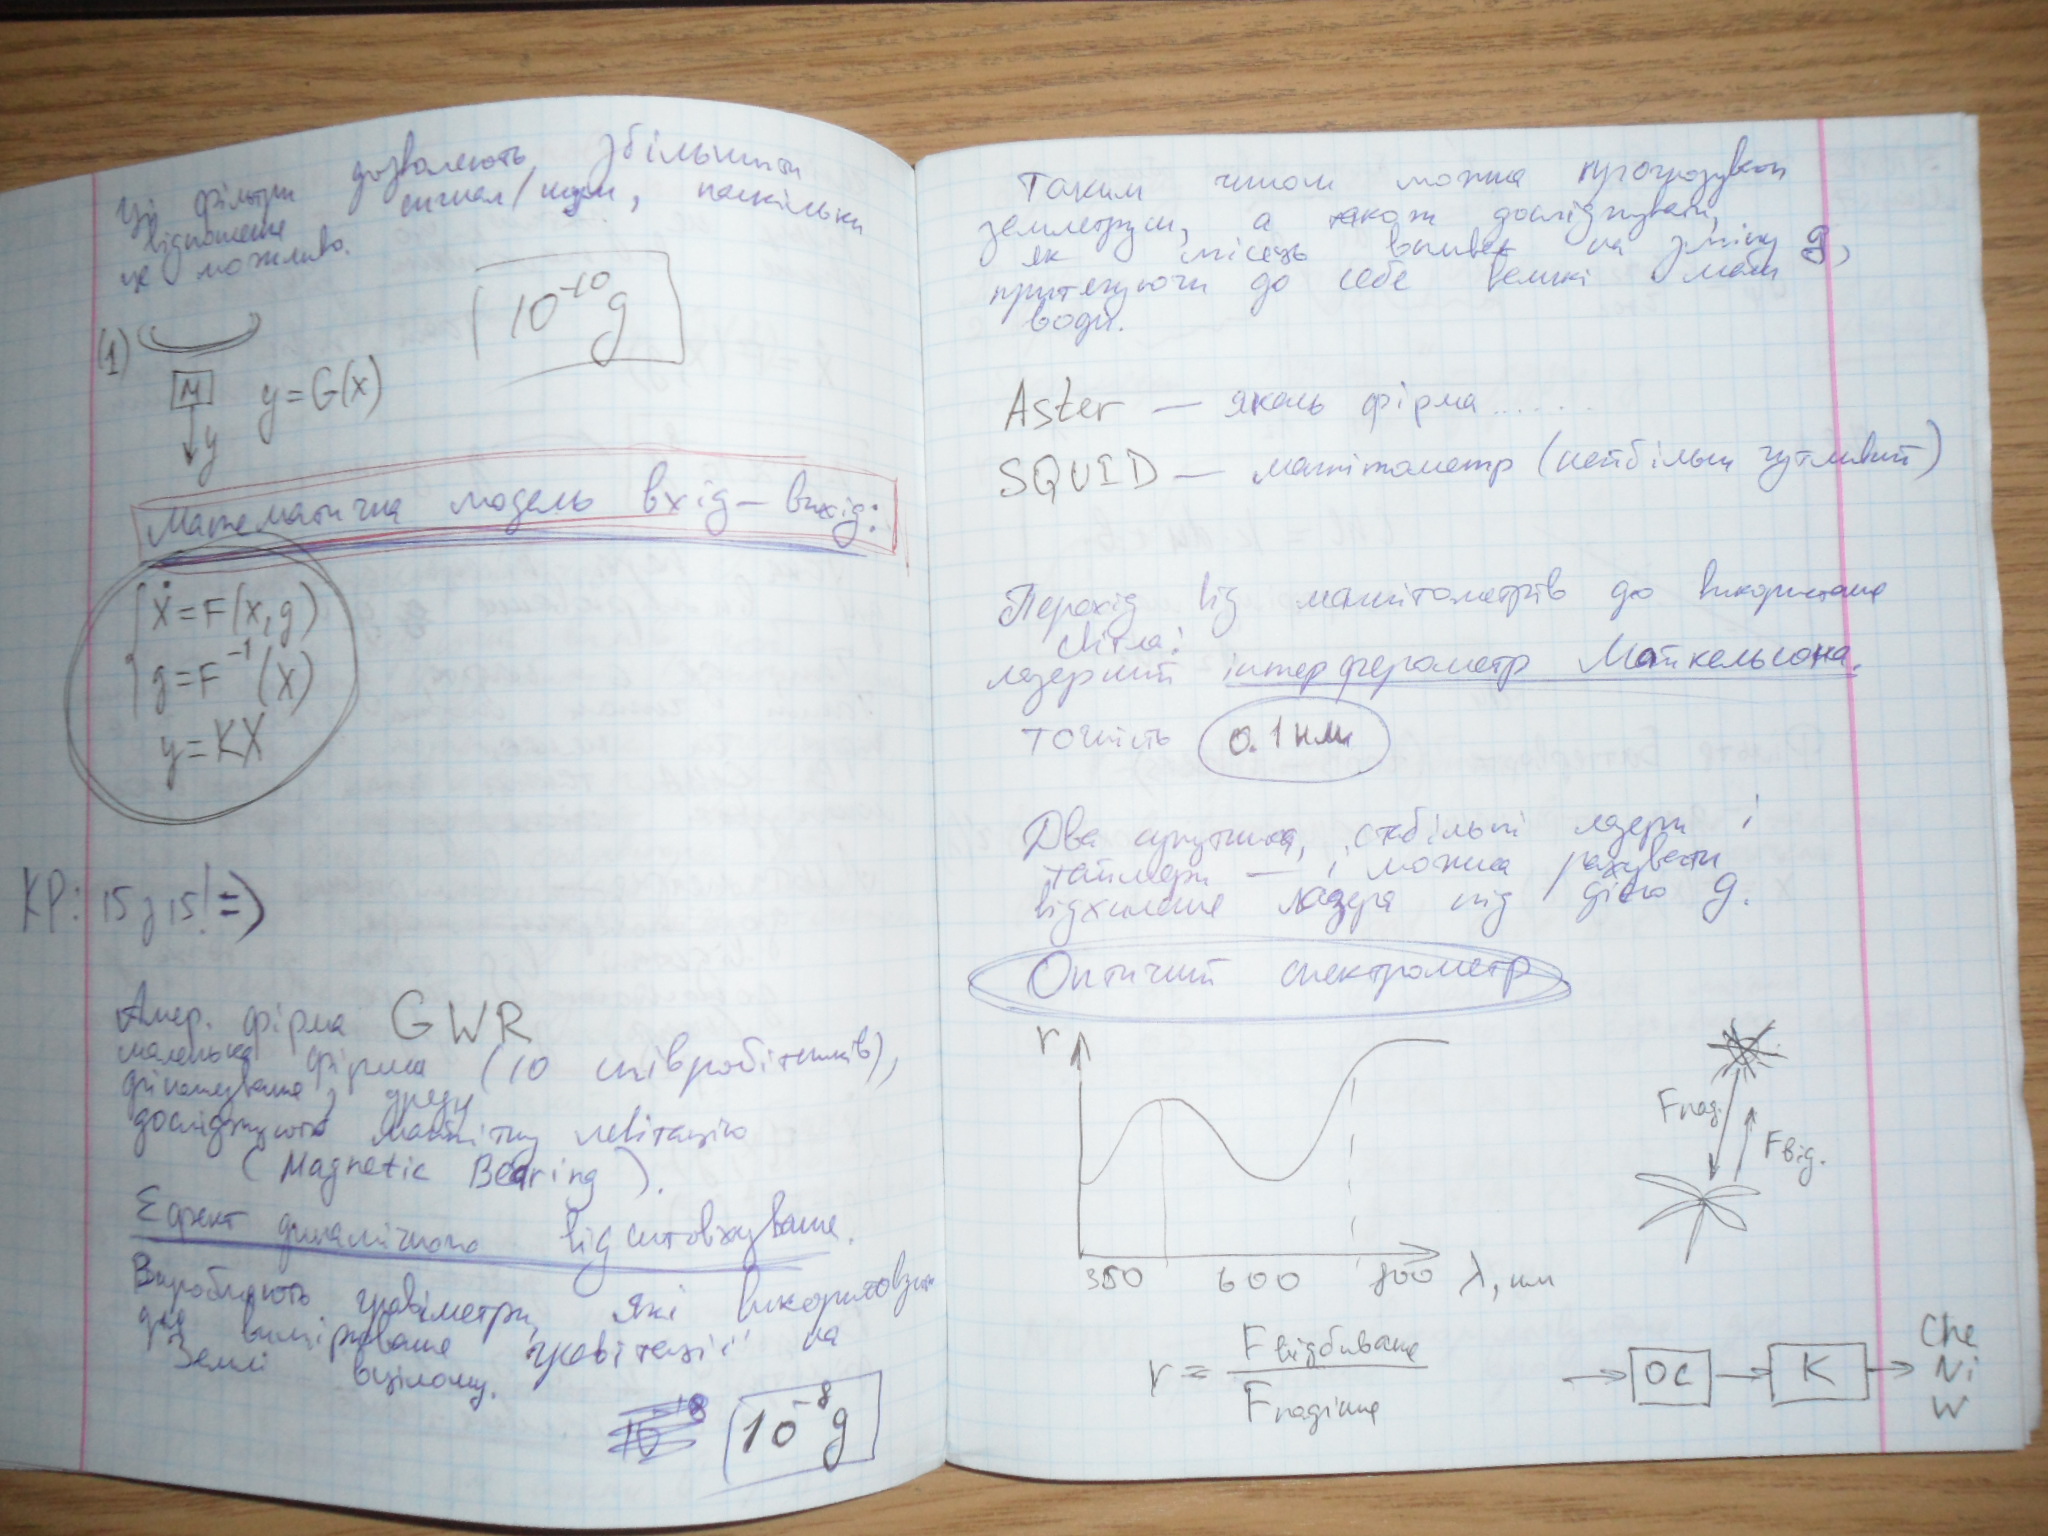 Ці фільтри дозволяють збільшити
відношення сигнал/шум, наскільки
це можливо.
10⁻¹⁰g
(1)
M
y=G(x)
y
Математична модель вхід – вихід:
Ẋ=F(x,g)
g=F⁻¹(X)
y=KX
КР: 15 з 15! =)
Амер. фірма GWR
маленька фірма (10 співробітників),
фінансування з уряду
досліджують магнітну левітацію
(Magnetic Bearing).
Ефект динамічного відслідковування.
Виробляють гравіметри, які використовують
для вимірювання гравітації на
Землі в цілому.
10⁻⁸g
Таким чином можна прогнозувати
землетруси, а також досліджувати,
як місяць впливає на зміну g,
притягуючи до себе великі маси
води.
Aster — якась фірма......
SQUID — магнітометр (найбільш чутливий)
Перехід від магнітометрів до використання
світла:
лазерний інтерферометр Майкельсона.
точність 0.1 нм
Два супутника, стабільні лазери і
таймери — і можна рахувати
відхилення лазера під дією g.
Оптичний спектрометр
r
Fпад.
Fвід.
350 600 800 λ, нм
r = Fвідбивання / Fпадіння
ОС
К
Che
Ni
W